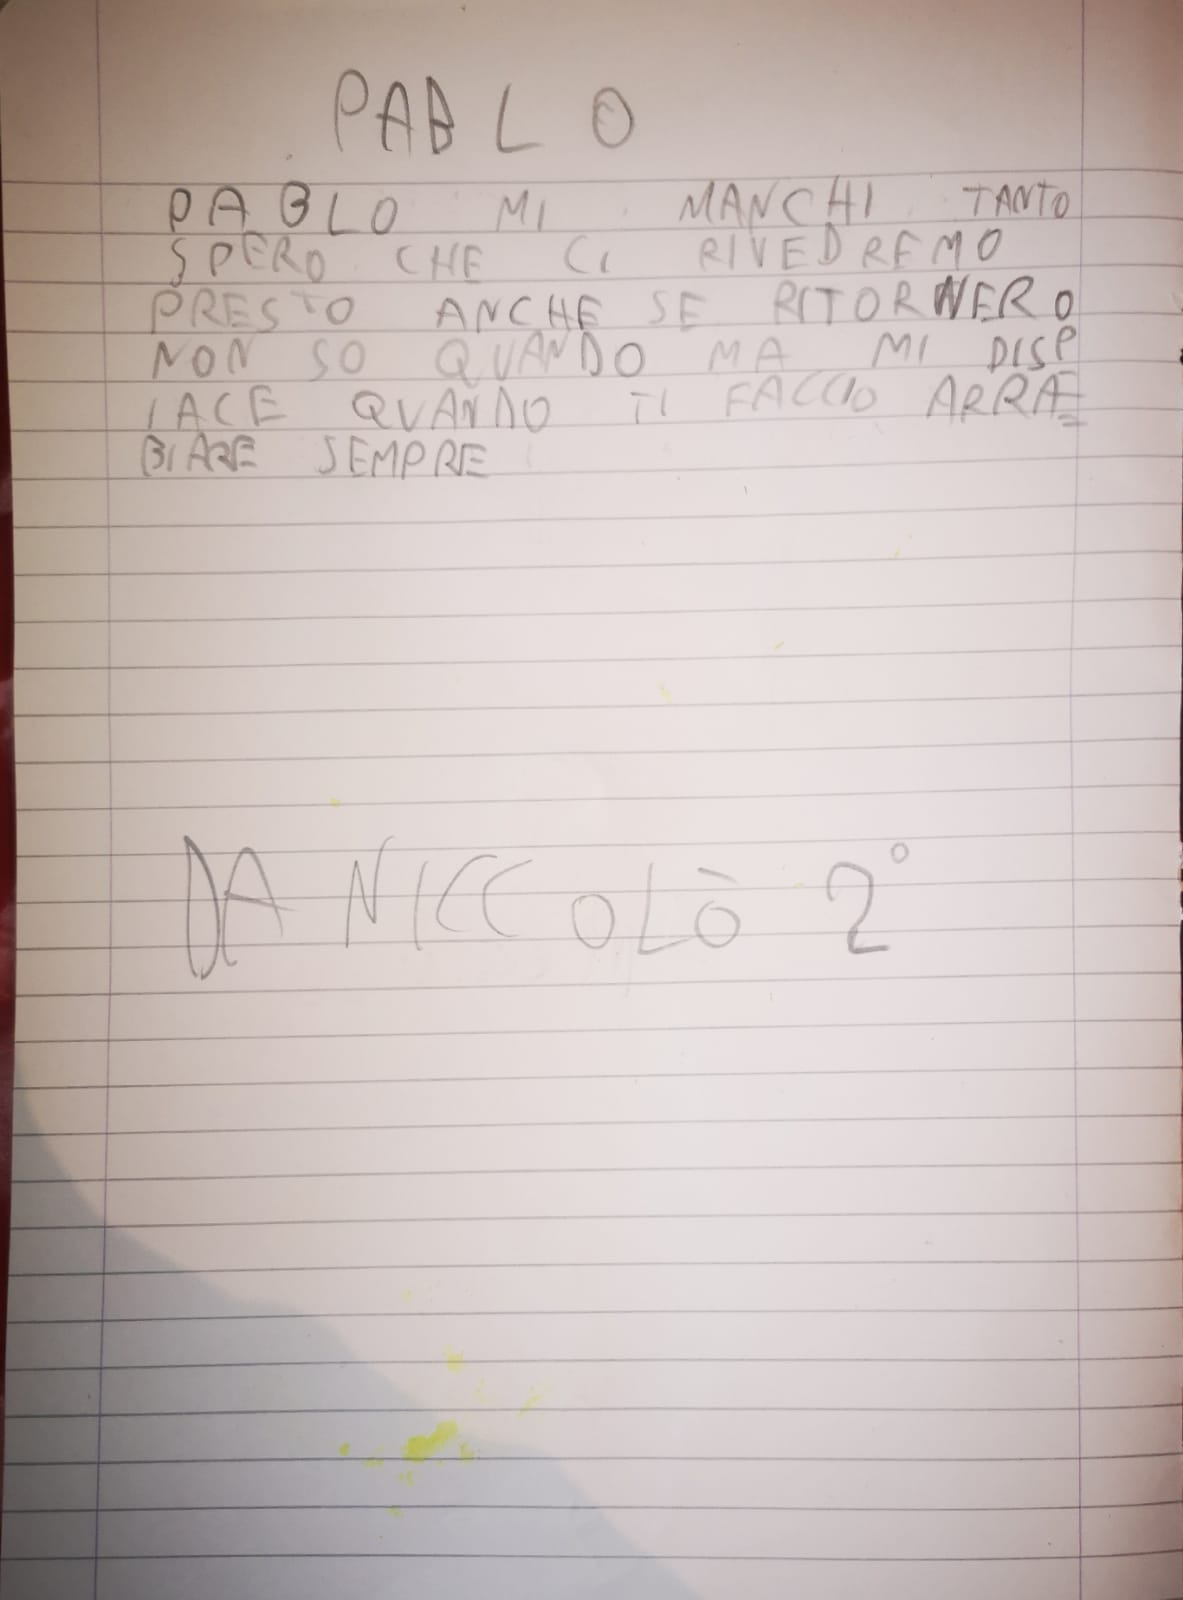 PABLO
PABLO MI MANCHI TANTO
SPERO CHE CI RIVEDREMO
PRESTO ANCHE SE RITORNERO
NON SO QUANDO MA MI DISP
IACE QUANDO TI FACCIO ARRA=
BIARE SEMPRE
DA NICCOLÒ 2°